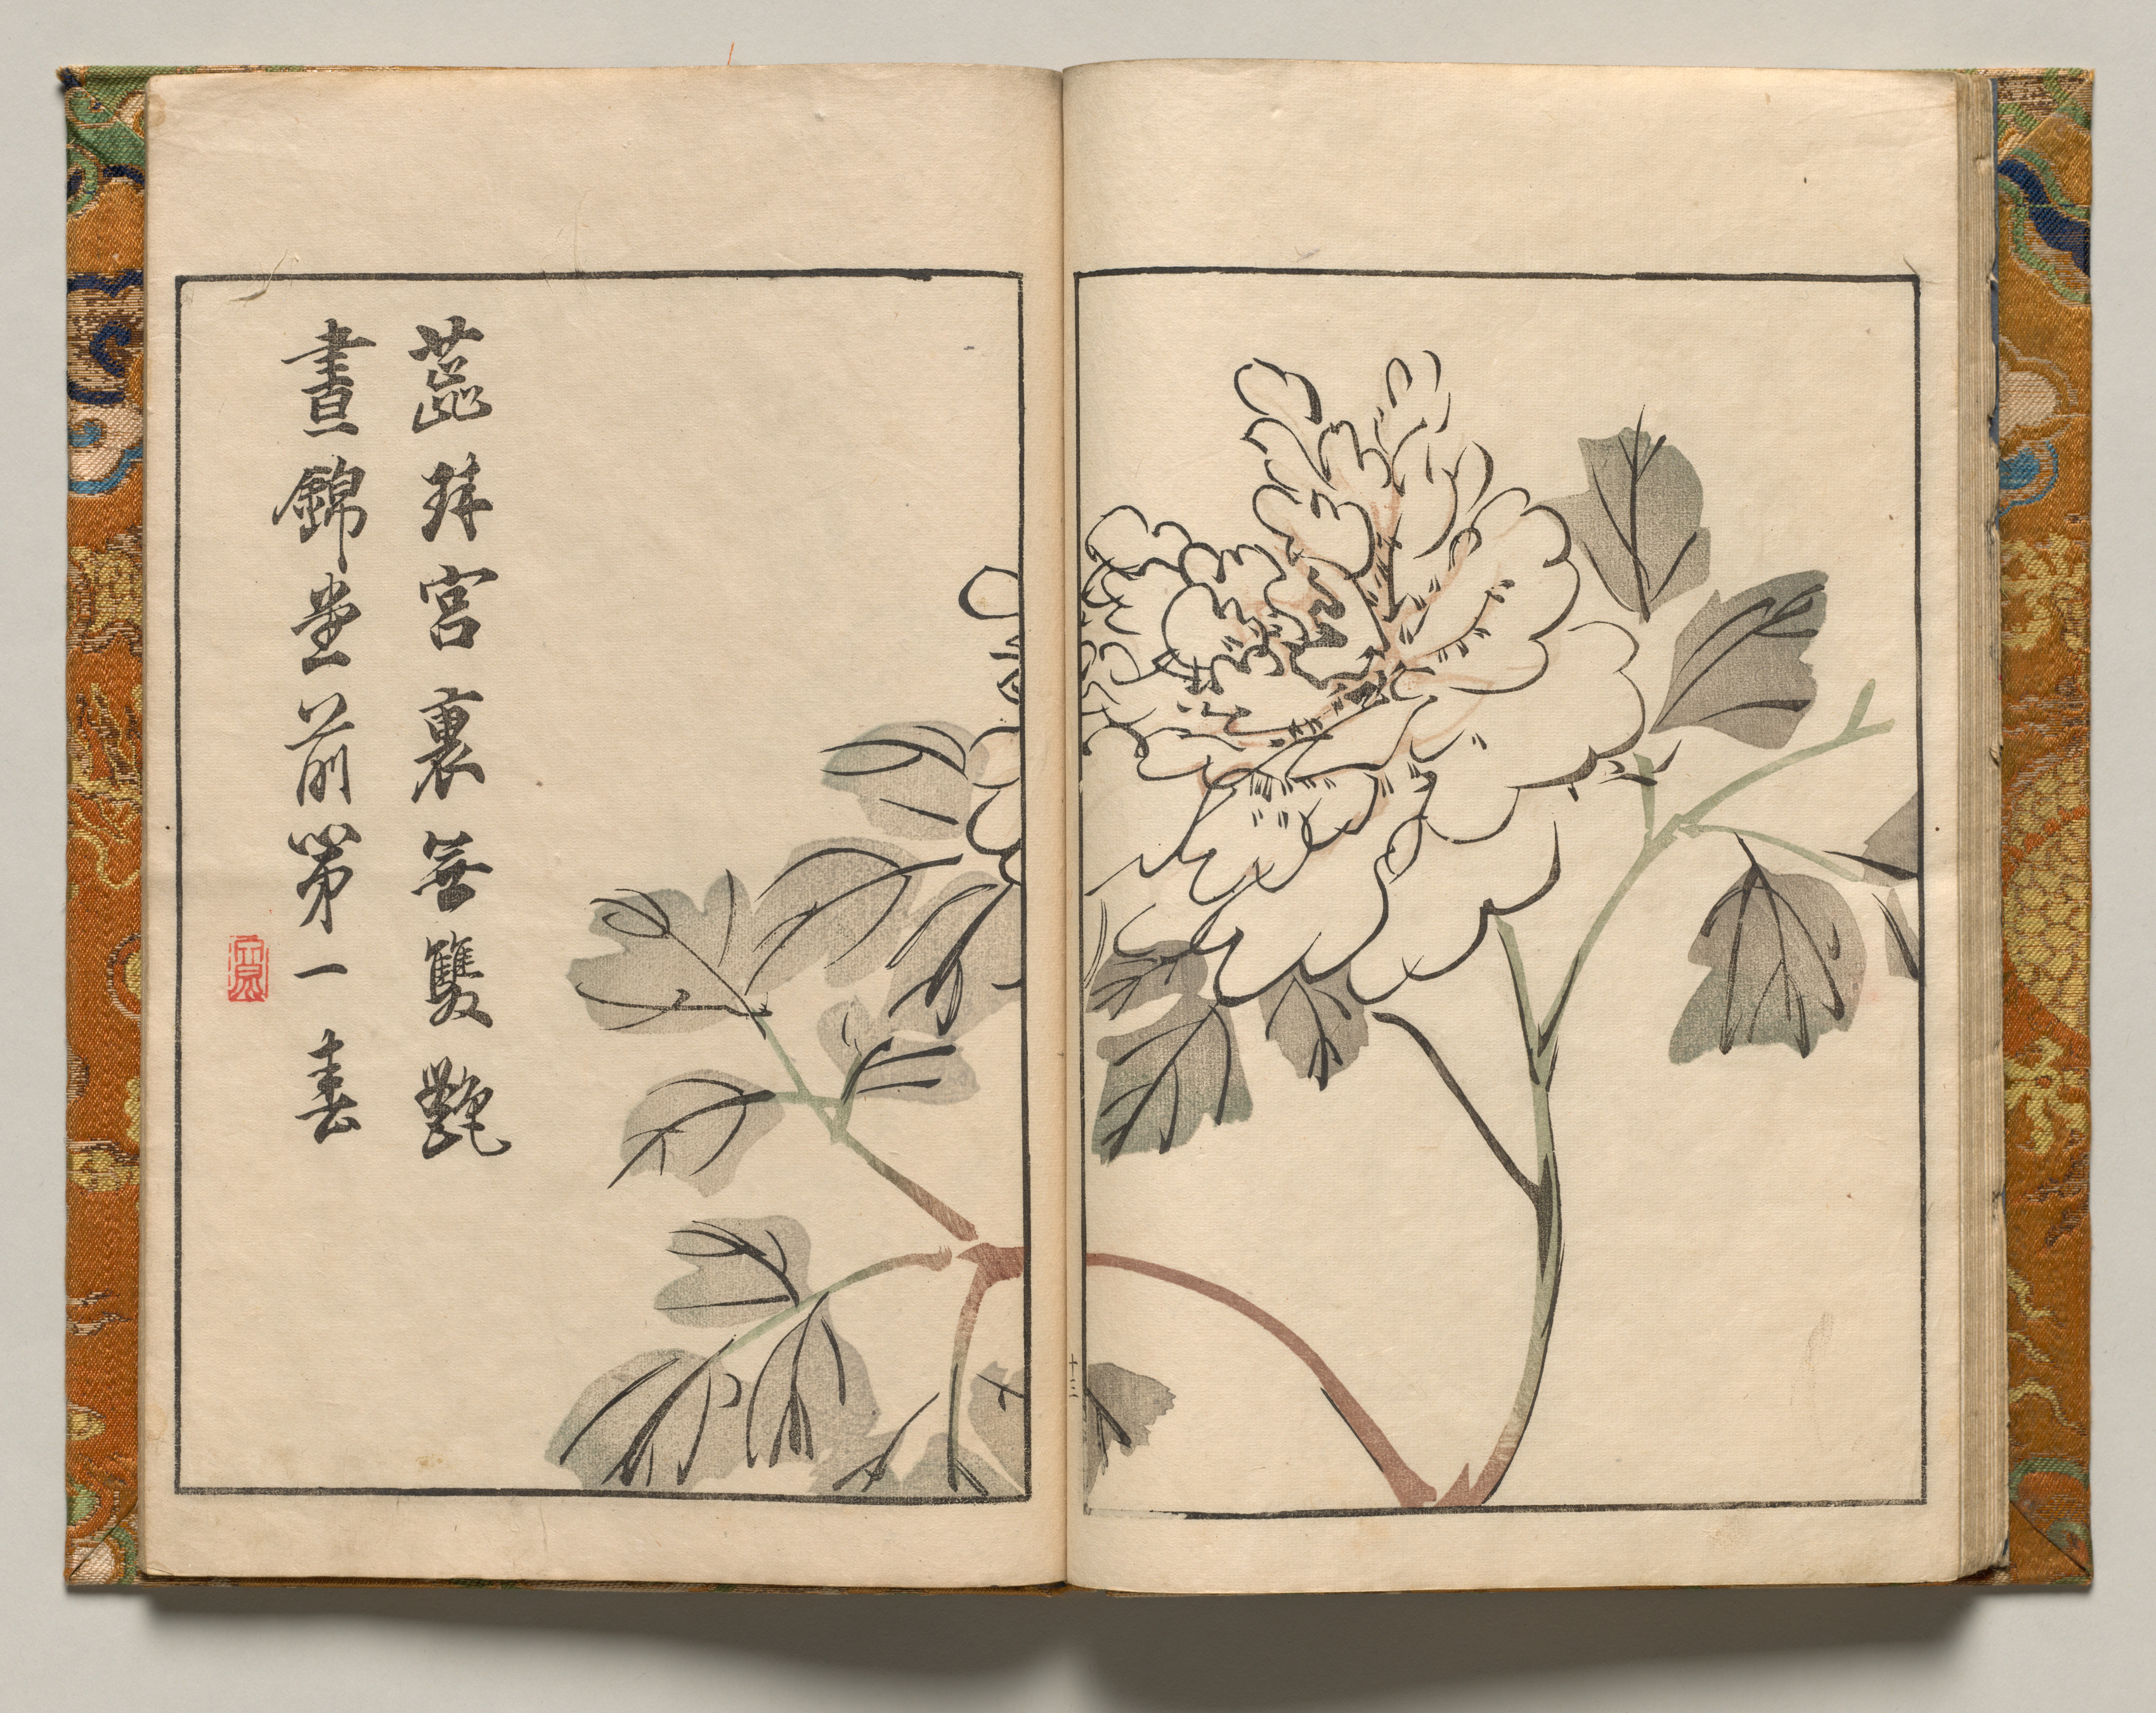 蕊珠宮裏無雙艷
晝錦堂前第一春
十三